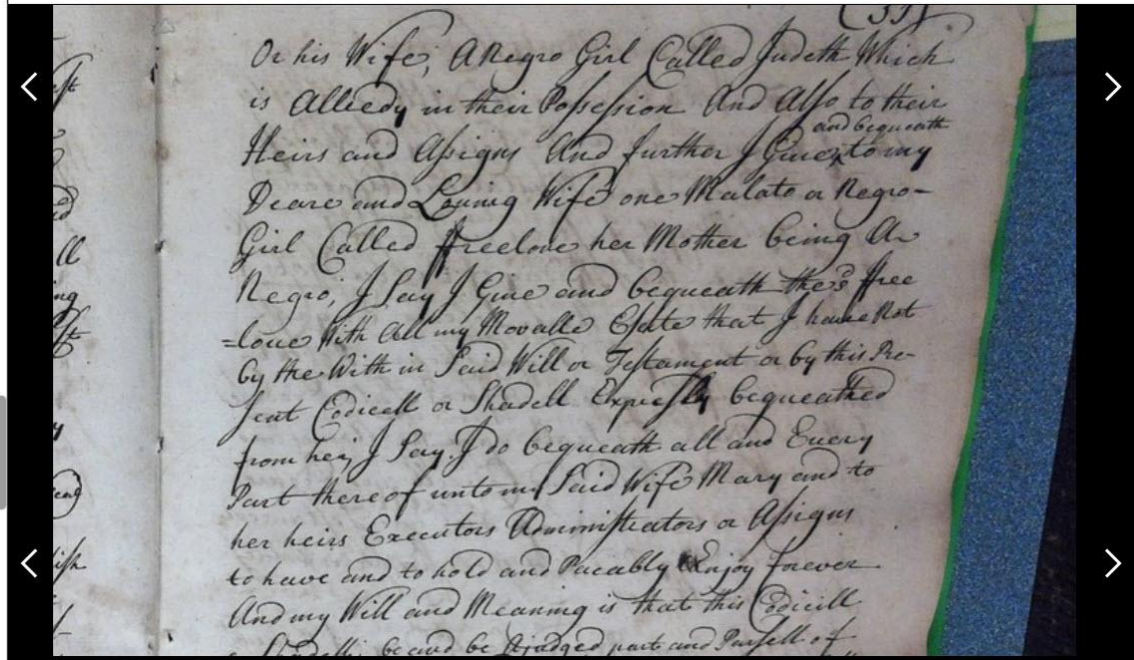 (35)
Or his Wife, A Negro Girl Called Judeth Which
is Allredy in their Possession And Also to their
and bequeath
Heirs and Assigns And further I Give to my
Deare and Loving Wife one Malato or Negro-
Girl Called ffreelove her Mother being A
Negro, I Say I Give and bequeath the sd ffree
=love With All my Movalle Estate that I have Not
by the With in Said Will or Testament or by this Pre-
sent Codicell or Shadell Expressly bequeathed
from her, I Say I do bequeath all and Every
Part there of unto my Said Wife Mary and to
her heirs Executors Administrators or Assigns
to have and to hold and Pacably Enjoy forever
And my Will and Meaning is that this Codicill
be and be Ajudged part and Parsell of